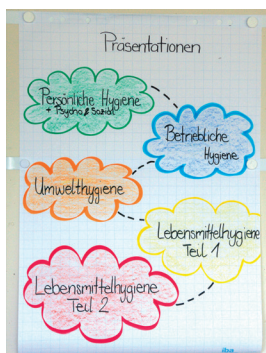 Präsentationen
Persönliche Hygiene
+ Psycho & Sozial
Betriebliche
Hygiene
Umwelthygiene
Lebensmittelhygiene
Teil 1
Lebensmittelhygiene
Teil 2